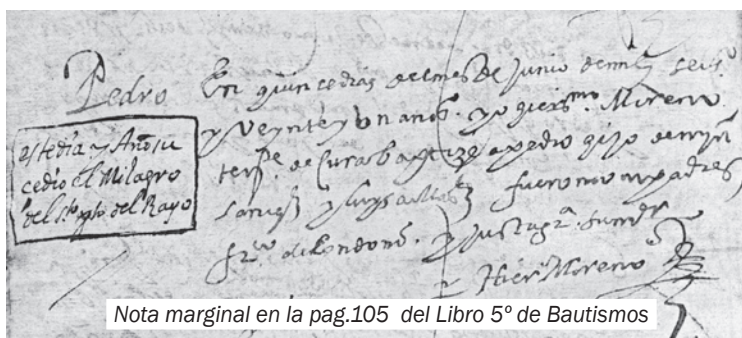 Pedro
este dia y Año su
cedio el Milagro
del Sto Xpto del Rayo
En quince dias del mes de Junio de mil y seisº
y veynte y un años. yo gierᵐᵒ. Moreno
teᵉ. de Cura baptize a pedro hijo de
y fueron compadres
frᵒ. de Londoñᵒ. y
Hierᵐᵒ Moreno
Nota marginal en la pag.105 del Libro 5º de Bautismos